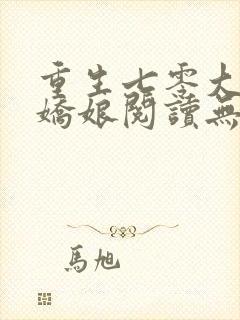 重生七零大
嬌娘閱讀無
馬旭